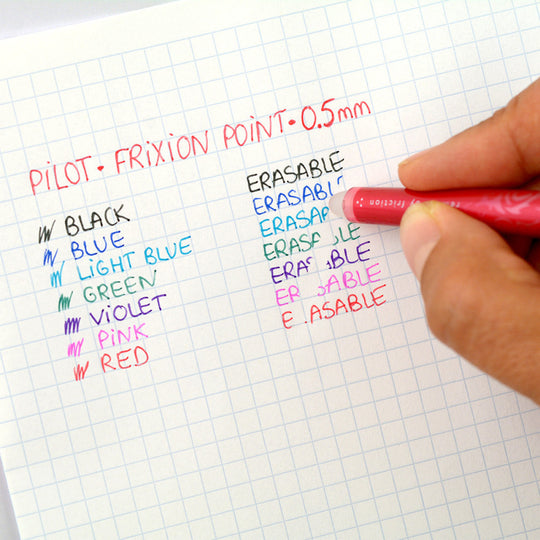 PiLOT • FRiXiON POiNT • 0.5mm
BLACK
BLUE
LIGHT BLUE
GREEN
ViOLET
PiNK
RED
ERASABLE
ERASABL
ERASA
ERASA LE
ERA BLE
ER SABLE
E ASABLE
friction